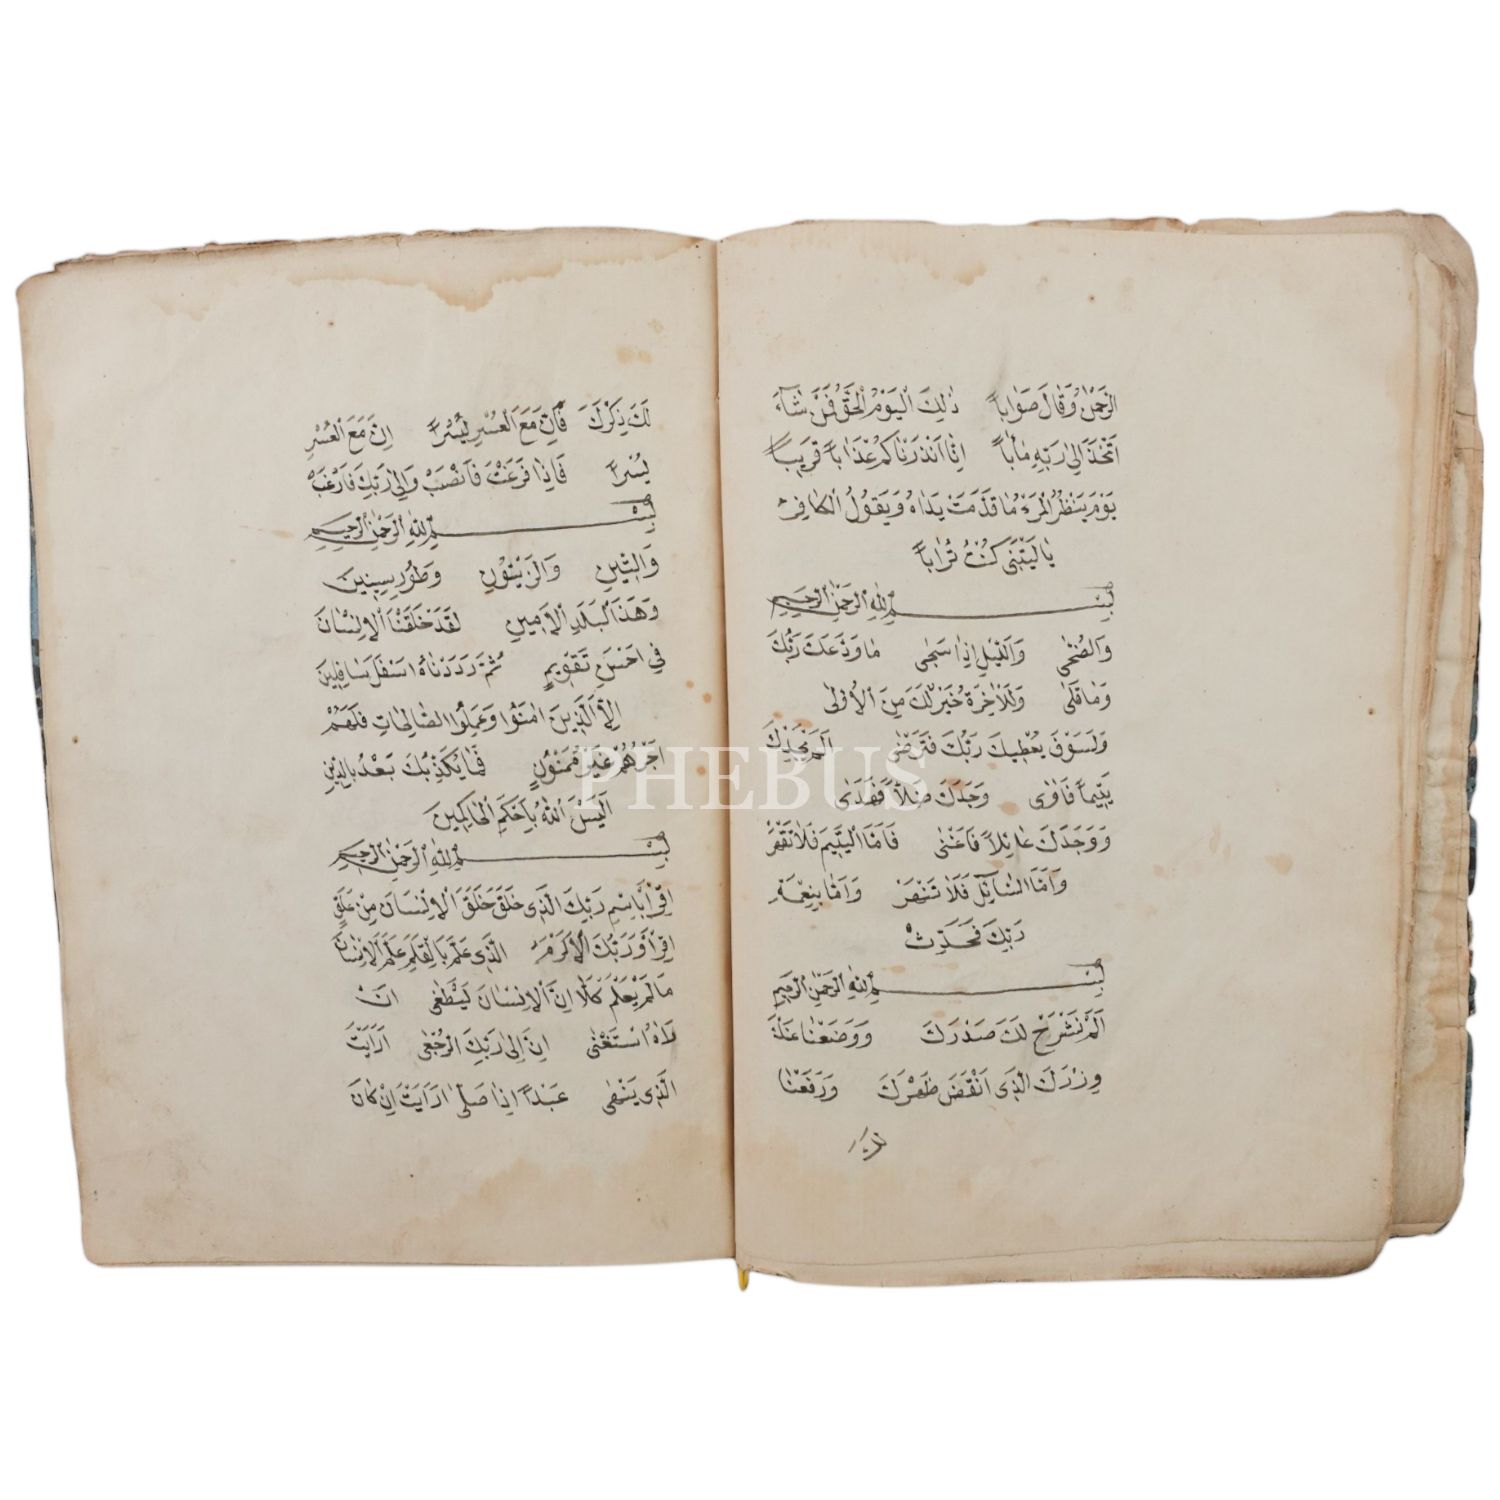 الرَّحْمٰنُ وَقَالَ صَوَاباً ذٰلِكَ الْيَوْمُ الْحَقُّ فَمَنْ شَاءَ
اتَّخَذَ اِلٰى رَبِّهِ مَاٰباً اِنَّا اَنْذَرْنَاكُمْ عَذَاباً قَرِيباً
يَوْمَ يَنْظُرُ الْمَرْءُ مَا قَدَّمَتْ يَدَاهُ وَيَقُولُ الْكَافِرُ
يَا لَيْتَنِى كُنْتُ تُرَاباً
بِسْمِ اللّٰهِ الرَّحْمٰنِ الرَّحِيمِ
وَالضُّحٰى وَالَّيْلِ اِذَا سَجٰى مَا وَدَّعَكَ رَبُّكَ
وَمَا قَلٰى وَلَلْاٰخِرَةُ خَيْرٌ لَكَ مِنَ الْاُولٰى
وَلَسَوْفَ يُعْطِيكَ رَبُّكَ فَتَرْضٰى اَلَمْ يَجِدْكَ
يَتِيماً فَاٰوٰى وَجَدَكَ ضَالّاً فَهَدٰى
وَوَجَدَكَ عَائِلاً فَاَغْنٰى فَاَمَّا الْيَتِيمَ فَلَا تَقْهَرْ
وَاَمَّا السَّائِلَ فَلَا تَنْهَرْ وَاَمَّا بِنِعْمَةِ
رَبِّكَ فَحَدِّثْ
بِسْمِ اللّٰهِ الرَّحْمٰنِ الرَّحِيمِ
اَلَمْ نَشْرَحْ لَكَ صَدْرَكَ وَوَضَعْنَا عَنْكَ
وِزْرَكَ الَّذِى اَنْقَضَ ظَهْرَكَ وَرَفَعْنَا
لَكَ ذِكْرَكَ فَاِنَّ مَعَ الْعُسْرِ يُسْراً اِنَّ مَعَ الْعُسْرِ
يُسْراً فَاِذَا فَرَغْتَ فَانْصَبْ وَاِلٰى رَبِّكَ فَارْغَبْ
بِسْمِ اللّٰهِ الرَّحْمٰنِ الرَّحِيمِ
وَالتِّينِ وَالزَّيْتُونِ وَطُورِ سِينِينَ
وَهٰذَا الْبَلَدِ الْاَمِينِ لَقَدْ خَلَقْنَا الْاِنْسَانَ
فِى اَحْسَنِ تَقْوِيمٍ ثُمَّ رَدَدْنَاهُ اَسْفَلَ سَافِلِينَ
اِلَّا الَّذِينَ اٰمَنُوا وَعَمِلُوا الصَّالِحَاتِ فَلَهُمْ
اَجْرٌ غَيْرُ مَمْنُونٍ فَمَا يُكَذِّبُكَ بَعْدُ بِالدِّينِ
اَلَيْسَ اللّٰهُ بِاَحْكَمِ الْحَاكِمِينَ
بِسْمِ اللّٰهِ الرَّحْمٰنِ الرَّحِيمِ
اِقْرَأْ بِاسْمِ رَبِّكَ الَّذِى خَلَقَ خَلَقَ الْاِنْسَانَ مِنْ عَلَقٍ
اِقْرَأْ وَرَبُّكَ الْاَكْرَمُ الَّذِى عَلَّمَ بِالْقَلَمِ عَلَّمَ الْاِنْسَانَ
مَا لَمْ يَعْلَمْ كَلَّا اِنَّ الْاِنْسَانَ لَيَطْغٰى اَنْ
رَاٰهُ اسْتَغْنٰى اِنَّ اِلٰى رَبِّكَ الرُّجْعٰى اَرَاَيْتَ
الَّذِى يَنْهٰى عَبْداً اِذَا صَلّٰى اَرَاَيْتَ اِنْ كَانَ
PHEBUS